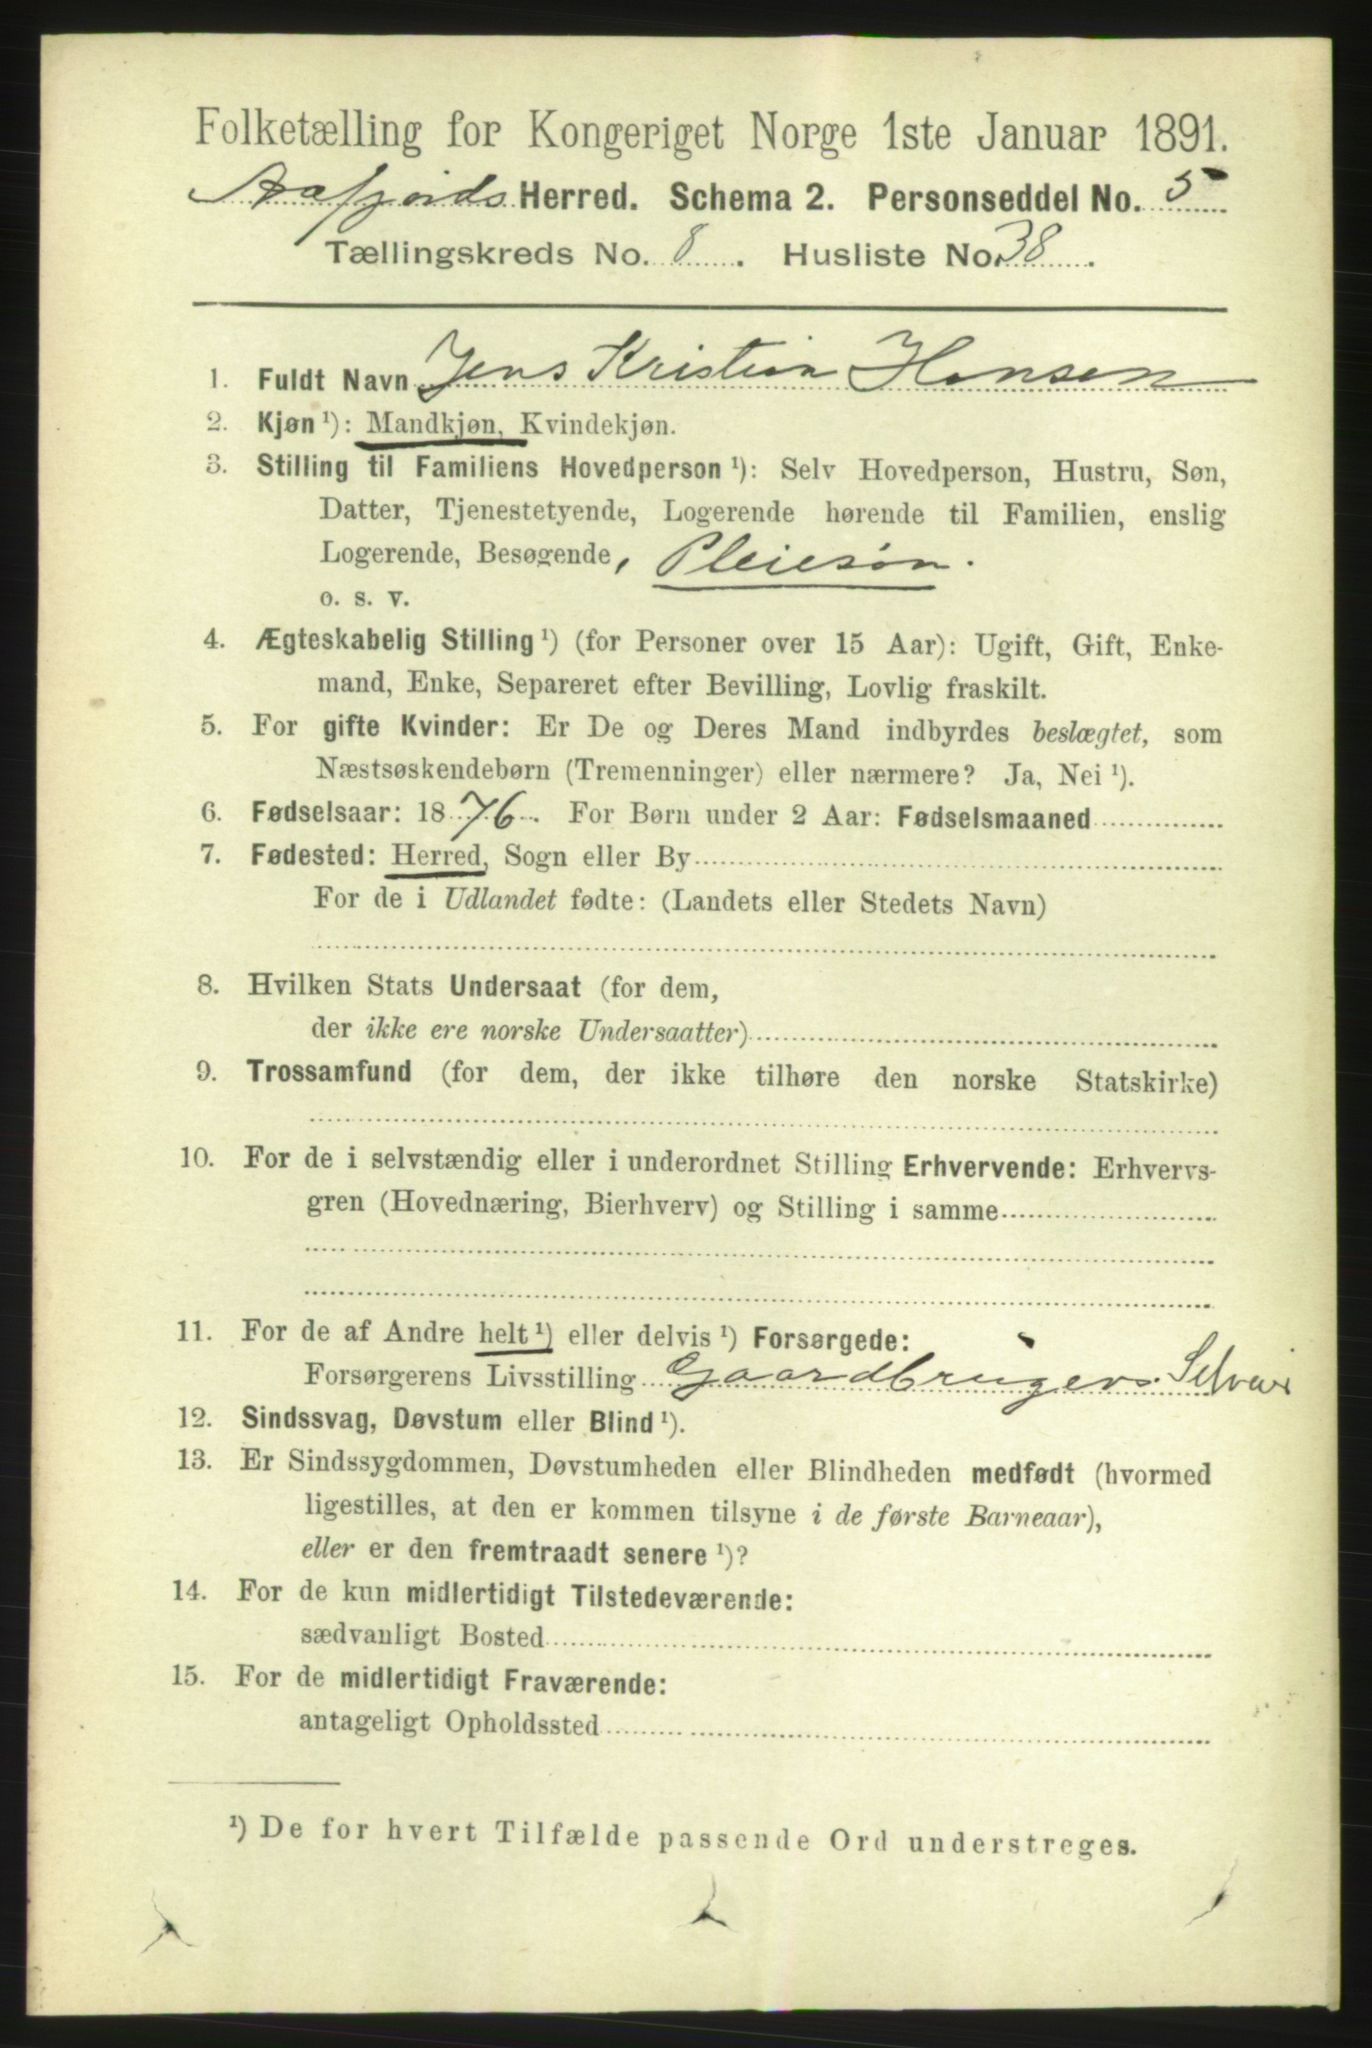 Folketælling for Kongeriget Norge 1ste Januar 1891.
Aafjords Herred. Schema 2. Personseddel No. 5
Tællingskreds No. 8. Husliste No. 38.
1. Fuldt Navn Jens Kristian Hansen
2. Kjøn ¹): Mandkjøn, Kvindekjøn.
3. Stilling til Familiens Hovedperson ¹): Selv Hovedperson, Hustru, Søn,
Datter, Tjenestetyende, Logerende hørende til Familien, enslig
Logerende, Besøgende, Pleiesøn.
o. s. v.
4. Ægteskabelig Stilling ¹) (for Personer over 15 Aar): Ugift, Gift, Enke-
mand, Enke, Separeret efter Bevilling, Lovlig fraskilt.
5. For gifte Kvinder: Er De og Deres Mand indbyrdes beslægtet, som
Næstsøskendebørn (Tremenninger) eller nærmere? Ja, Nei ¹).
6. Fødselsaar: 1876. For Børn under 2 Aar: Fødselsmaaned
7. Fødested: Herred, Sogn eller By
For de i Udlandet fødte: (Landets eller Stedets Navn)
8. Hvilken Stats Undersaat (for dem,
der ikke ere norske Undersaatter)
9. Trossamfund (for dem, der ikke tilhøre den norske Statskirke)
10. For de i selvstændig eller i underordnet Stilling Erhvervende: Erhvervs-
gren (Hovednæring, Bierhverv) og Stilling i samme
11. For de af Andre helt ¹) eller delvis ¹) Forsørgede:
Forsørgerens Livsstilling Gaardbruger Selveier
12. Sindssvag, Døvstum eller Blind ¹).
13. Er Sindssygdommen, Døvstumheden eller Blindheden medfødt (hvormed
ligestilles, at den er kommen tilsyne i de første Barneaar),
eller er den fremtraadt senere ¹)?
14. For de kun midlertidigt Tilstedeværende:
sædvanligt Bosted
15. For de midlertidigt Fraværende:
antageligt Opholdssted
¹) De for hvert Tilfælde passende Ord understreges.